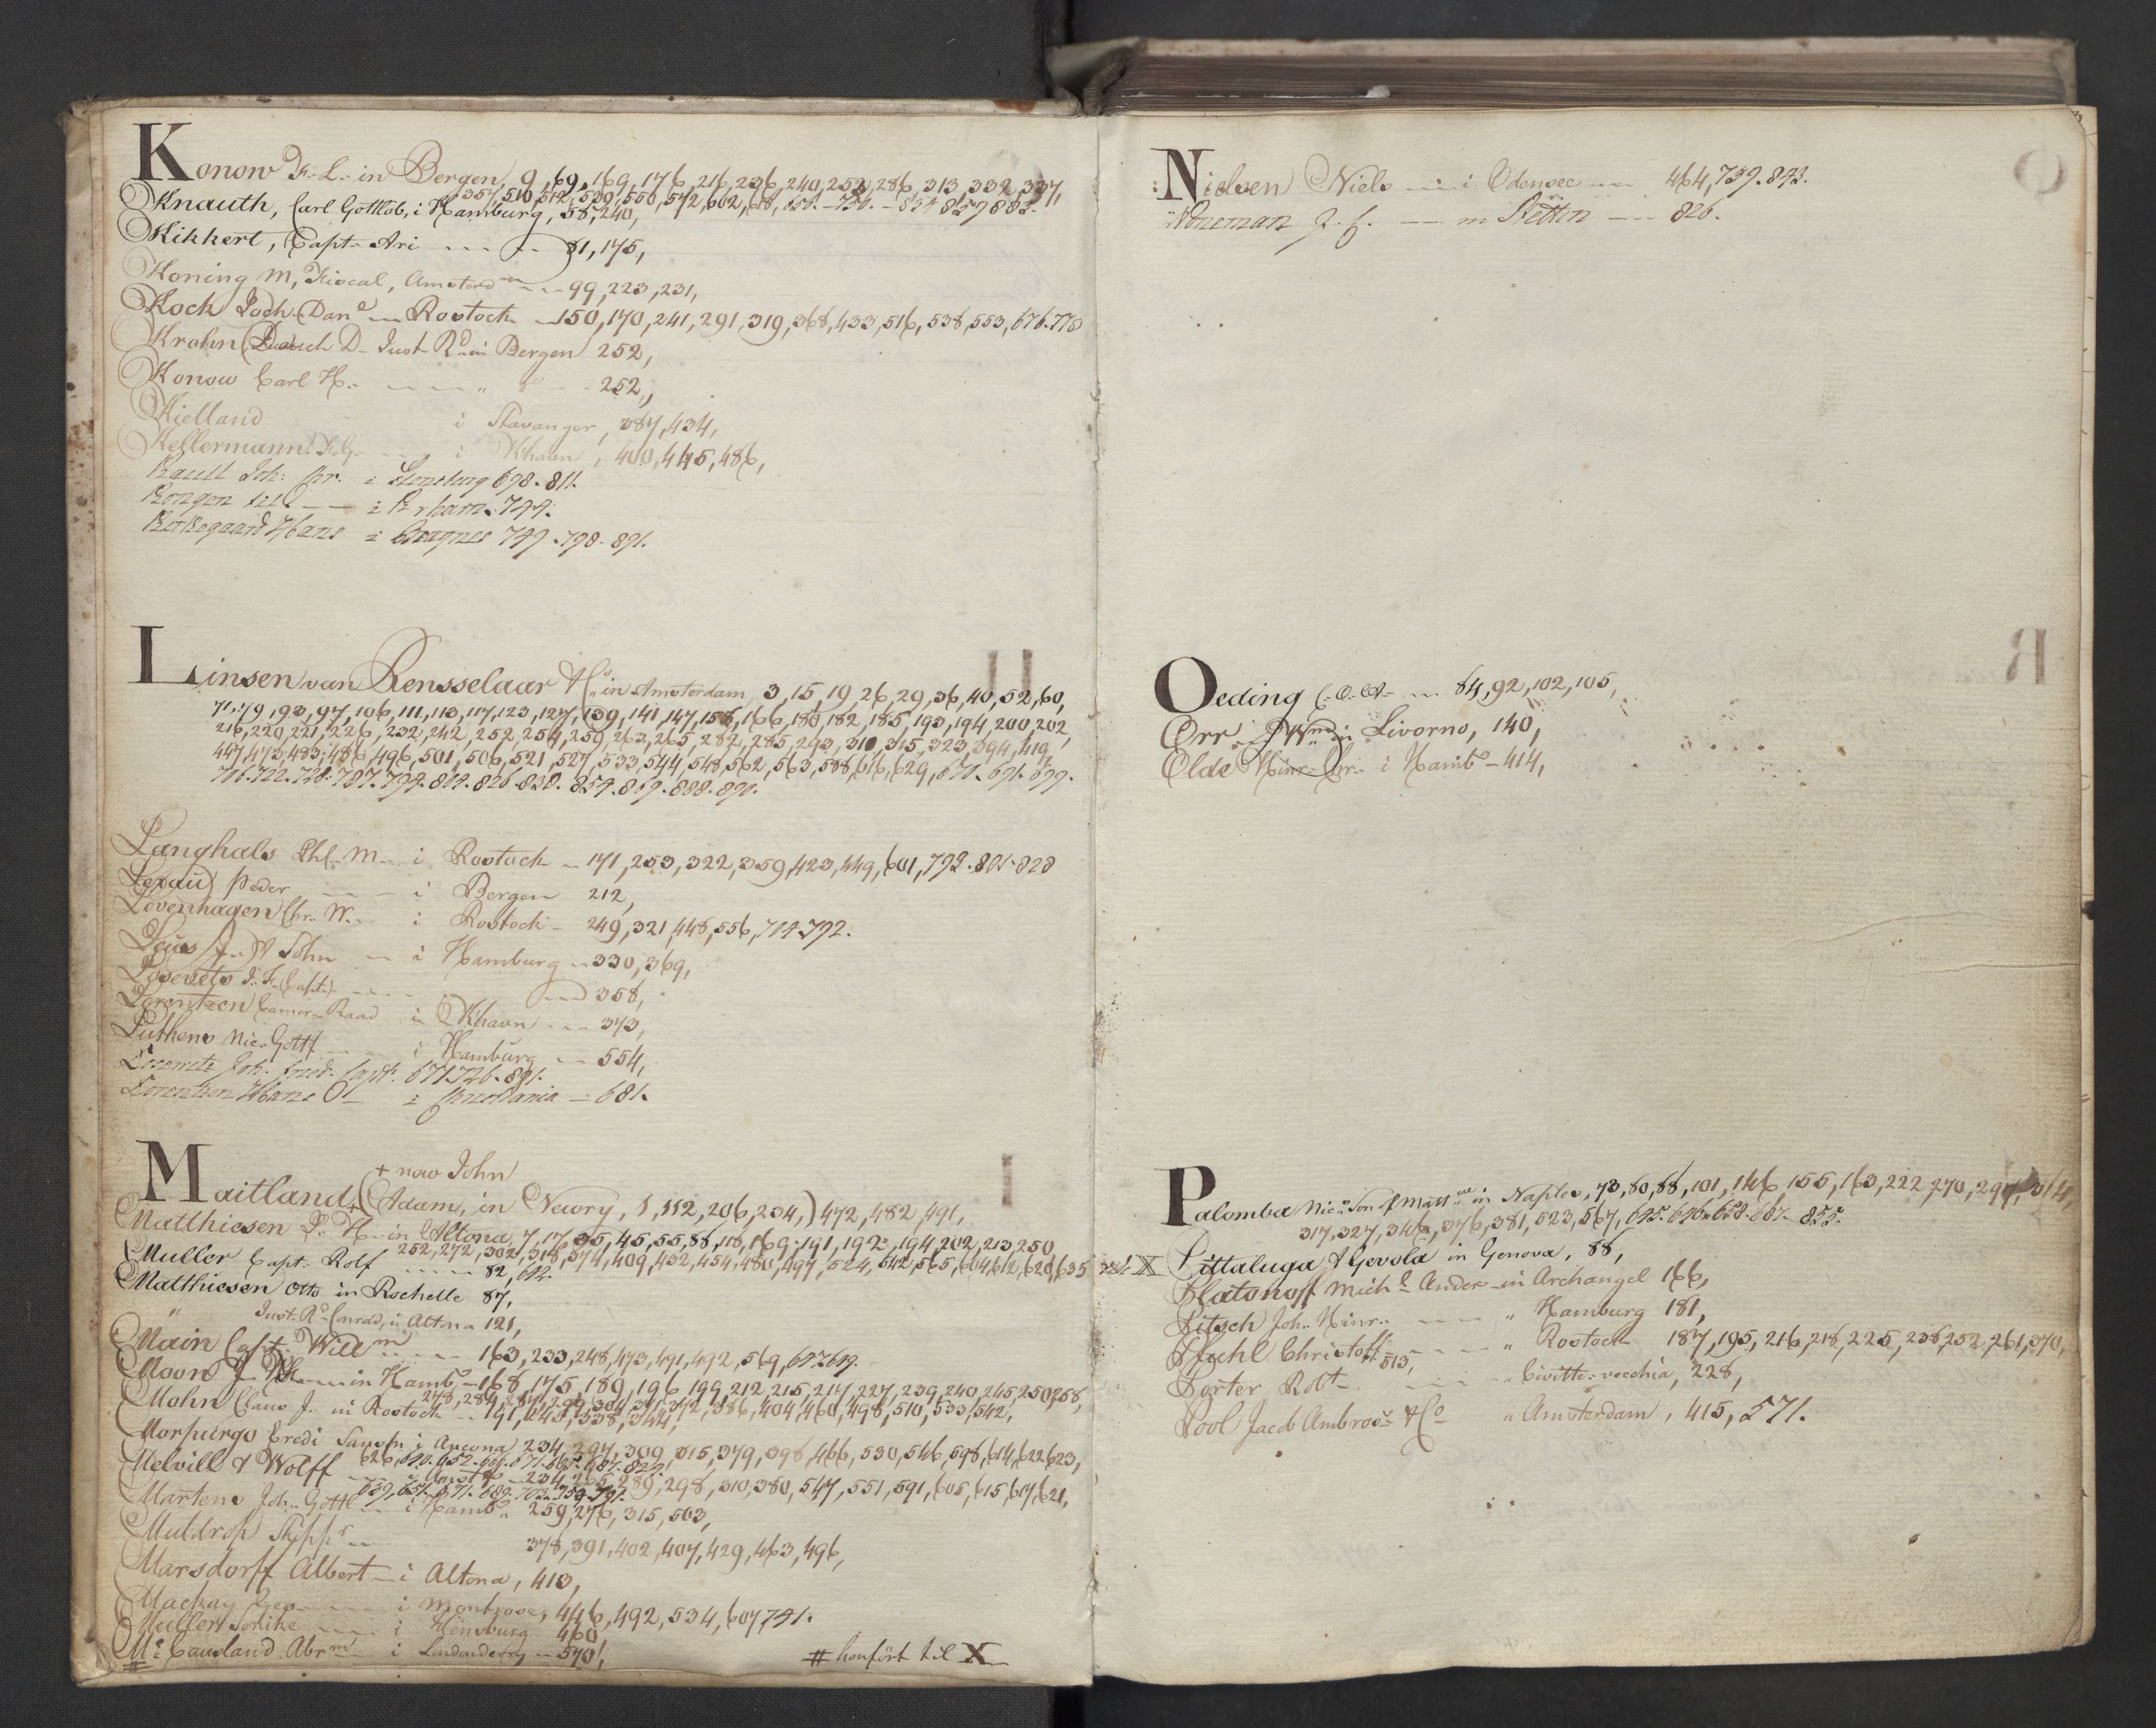 Konow F. L. in Bergen, 9, 69, 169, 176, 216, 236, 240, 252, 286, 313, 332, 337,
357, 510, 512, 529, 550, 572, 602,
Knauth, Carl Gottlob, i Hamburg, 58, 240,
Kikkert, Capt. Ari 81, 175,
Koning M, Fiscal, Amsterdm 99, 223, 231,
Koch Joch. Danl Rostock 150, 170, 241, 291, 319, 368, 433, 516, 538, 553, 676. 770
Krohn D. Just. Rd in Bergen 252,
Konow Carl H. " do 252,
Kielland i Stavanger, 387, 434,
Kellermann i Khavn, 400, 445, 486,
Kall Joh: Chr. i Flensburg 698. 811.
Kongen i Kiøbhavn. 744.
Kirkegaard Hans i Bragnes 749. 798. 891.
Linsen van Rensselaar & Co in Amsterdam, 3, 15, 19, 26, 29, 36, 40, 52, 60,
71, 79, 93, 97, 106, 111, 113, 117, 123, 127, 139, 141, 147, 156, 166, 180, 182, 185, 193, 194, 200, 202,
216, 220, 221, 226, 232, 242, 252, 254, 259, 263, 265, 282, 285, 293, 310, 315, 323, 394, 419,
447, 473, 483, 486, 496, 501, 506, 521, 527, 533, 544, 548, 562, 563, 588, 616, 629, 671. 691. 699.
706. 722. 728. 787. 794. 804. 826. 838. 854. 869. 888. 890.
Langhals Phl. M. i Rostock 171, 253, 322, 359, 423, 449, 601, 792. 801. 828
Lexau Peder i Bergen 212,
Levenhagen Chr. W. i Rostock 249, 321, 448, 556, 704. 792.
& Sohn i Hamburg 330, 369,
J. F. (Capt.) 358,
Lorentzen Camer. Raad i Khavn 373,
Luthens Nic. Gottf i Hamburg 554,
Joh. Fried. Capt. 671. 726. 891.
Lorentzen Hans i Christiania 681.
+ now John
Maitland, + (Adam, in Newry, 1, 112, 206, 234,) 472, 482, 491,
Matthiesen P. H. in Altona 7, 17, 35, 45, 55, 88, 118, 169, 191, 192, 194, 202, 213, 250
252, 272, 302, 318, 374, 409, 432, 454, 480, 497, 524, 542, 565, 604, 612, 628, 635
Muller Capt. Rolf 82, 692.
Matthiesen Otto in Rochelle 87,
" Just. Rd Conrad, i Altona 121,
Main Capt. Willm 163, 233, 248, 473, 491, 492, 569, 647. 649.
Moon in Hambo 168, 175, 189, 196, 199, 212, 215, 217, 227, 239, 240, 245, 250, 268,
Mohn Claus J. in Rostock 191, 243, 338, 344,
Morpurgo Eredi Sanson i Ancona 234, 297, 309, 315, 379, 398, 466, 530, 546, 598, 614, 622, 623,
Melvill & Wolff i Amstd 234, 265, 289, 298, 310, 380, 547, 551, 591, 605, 615, 617, 621,
Martens Joh. Gottl i Hambo 259, 276, 315, 503,
Muldrop Skippr 378, 391, 402, 407, 429, 463, 496,
Marsdorff Albert i Altona, 413,
Mackay Geo i Montrose, 446, 492, 534, 607, 741.
Muller Sønike i Flensburg 460
Mc Causland Abrm i Londonderry 570,
# henført til X
Nielsen Niels i Odensee 464, 739. 843.
Noneman J. C. in Stettin 826.
Oeding C. 84, 92, 102, 105,
Orr in Livorno, 140,
Olde Hinr. Chr. i Hambo 414,
Palomba Nic. Son of Mattw in Naples, 73, 80, 88, 101, 146, 155, 163, 222, 270, 297, 314,
317, 327, 346, 376, 381, 523, 567, 645. 646. 658. 667. 855.
X Pittaluga & Gevola in Genova, 88,
Platonoff Michl Anders in Archangel 166,
Pitsch Joh. Hinr. " Hamburg 181,
Puhl Christoff " Rostock 187, 195, 216, 218, 225, 238, 252, 261, 370,
513,
Porter Robt " Civitte-vecchia, 228,
Pool Jacob Ambrose & Co " Amsterdam, 415, 571.